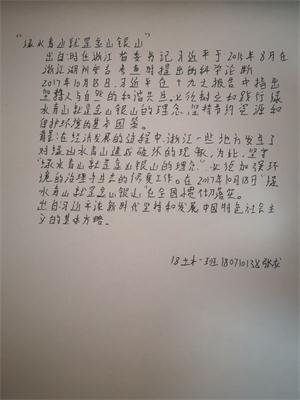 "绿水青山就是金山银山"
出自:时任浙江省委书记习近平于2015年8月在
浙江湖州安吉考查时提出的科学论断
2017年10月18日,习近平在十九大报告中指出
坚持人与自然的和谐共生,必须树立和践行绿
水青山就是金山银山的理念,坚持节约资源和
保护环境的基本国策。
背景:在经济发展的进程中,浙江一些地方发生了
对绿水青山造成破坏的现象,为此,坚守
"绿水青山就是金山银山的理念",必须加强环
境的治理与生态的修复工作。在2017年10月18日"绿
水青山就是金山银山"在全国落实。
出自:习近平论新时代坚持和发展中国特色社会主
义的基本方略。
18土木一班 180710138张龙